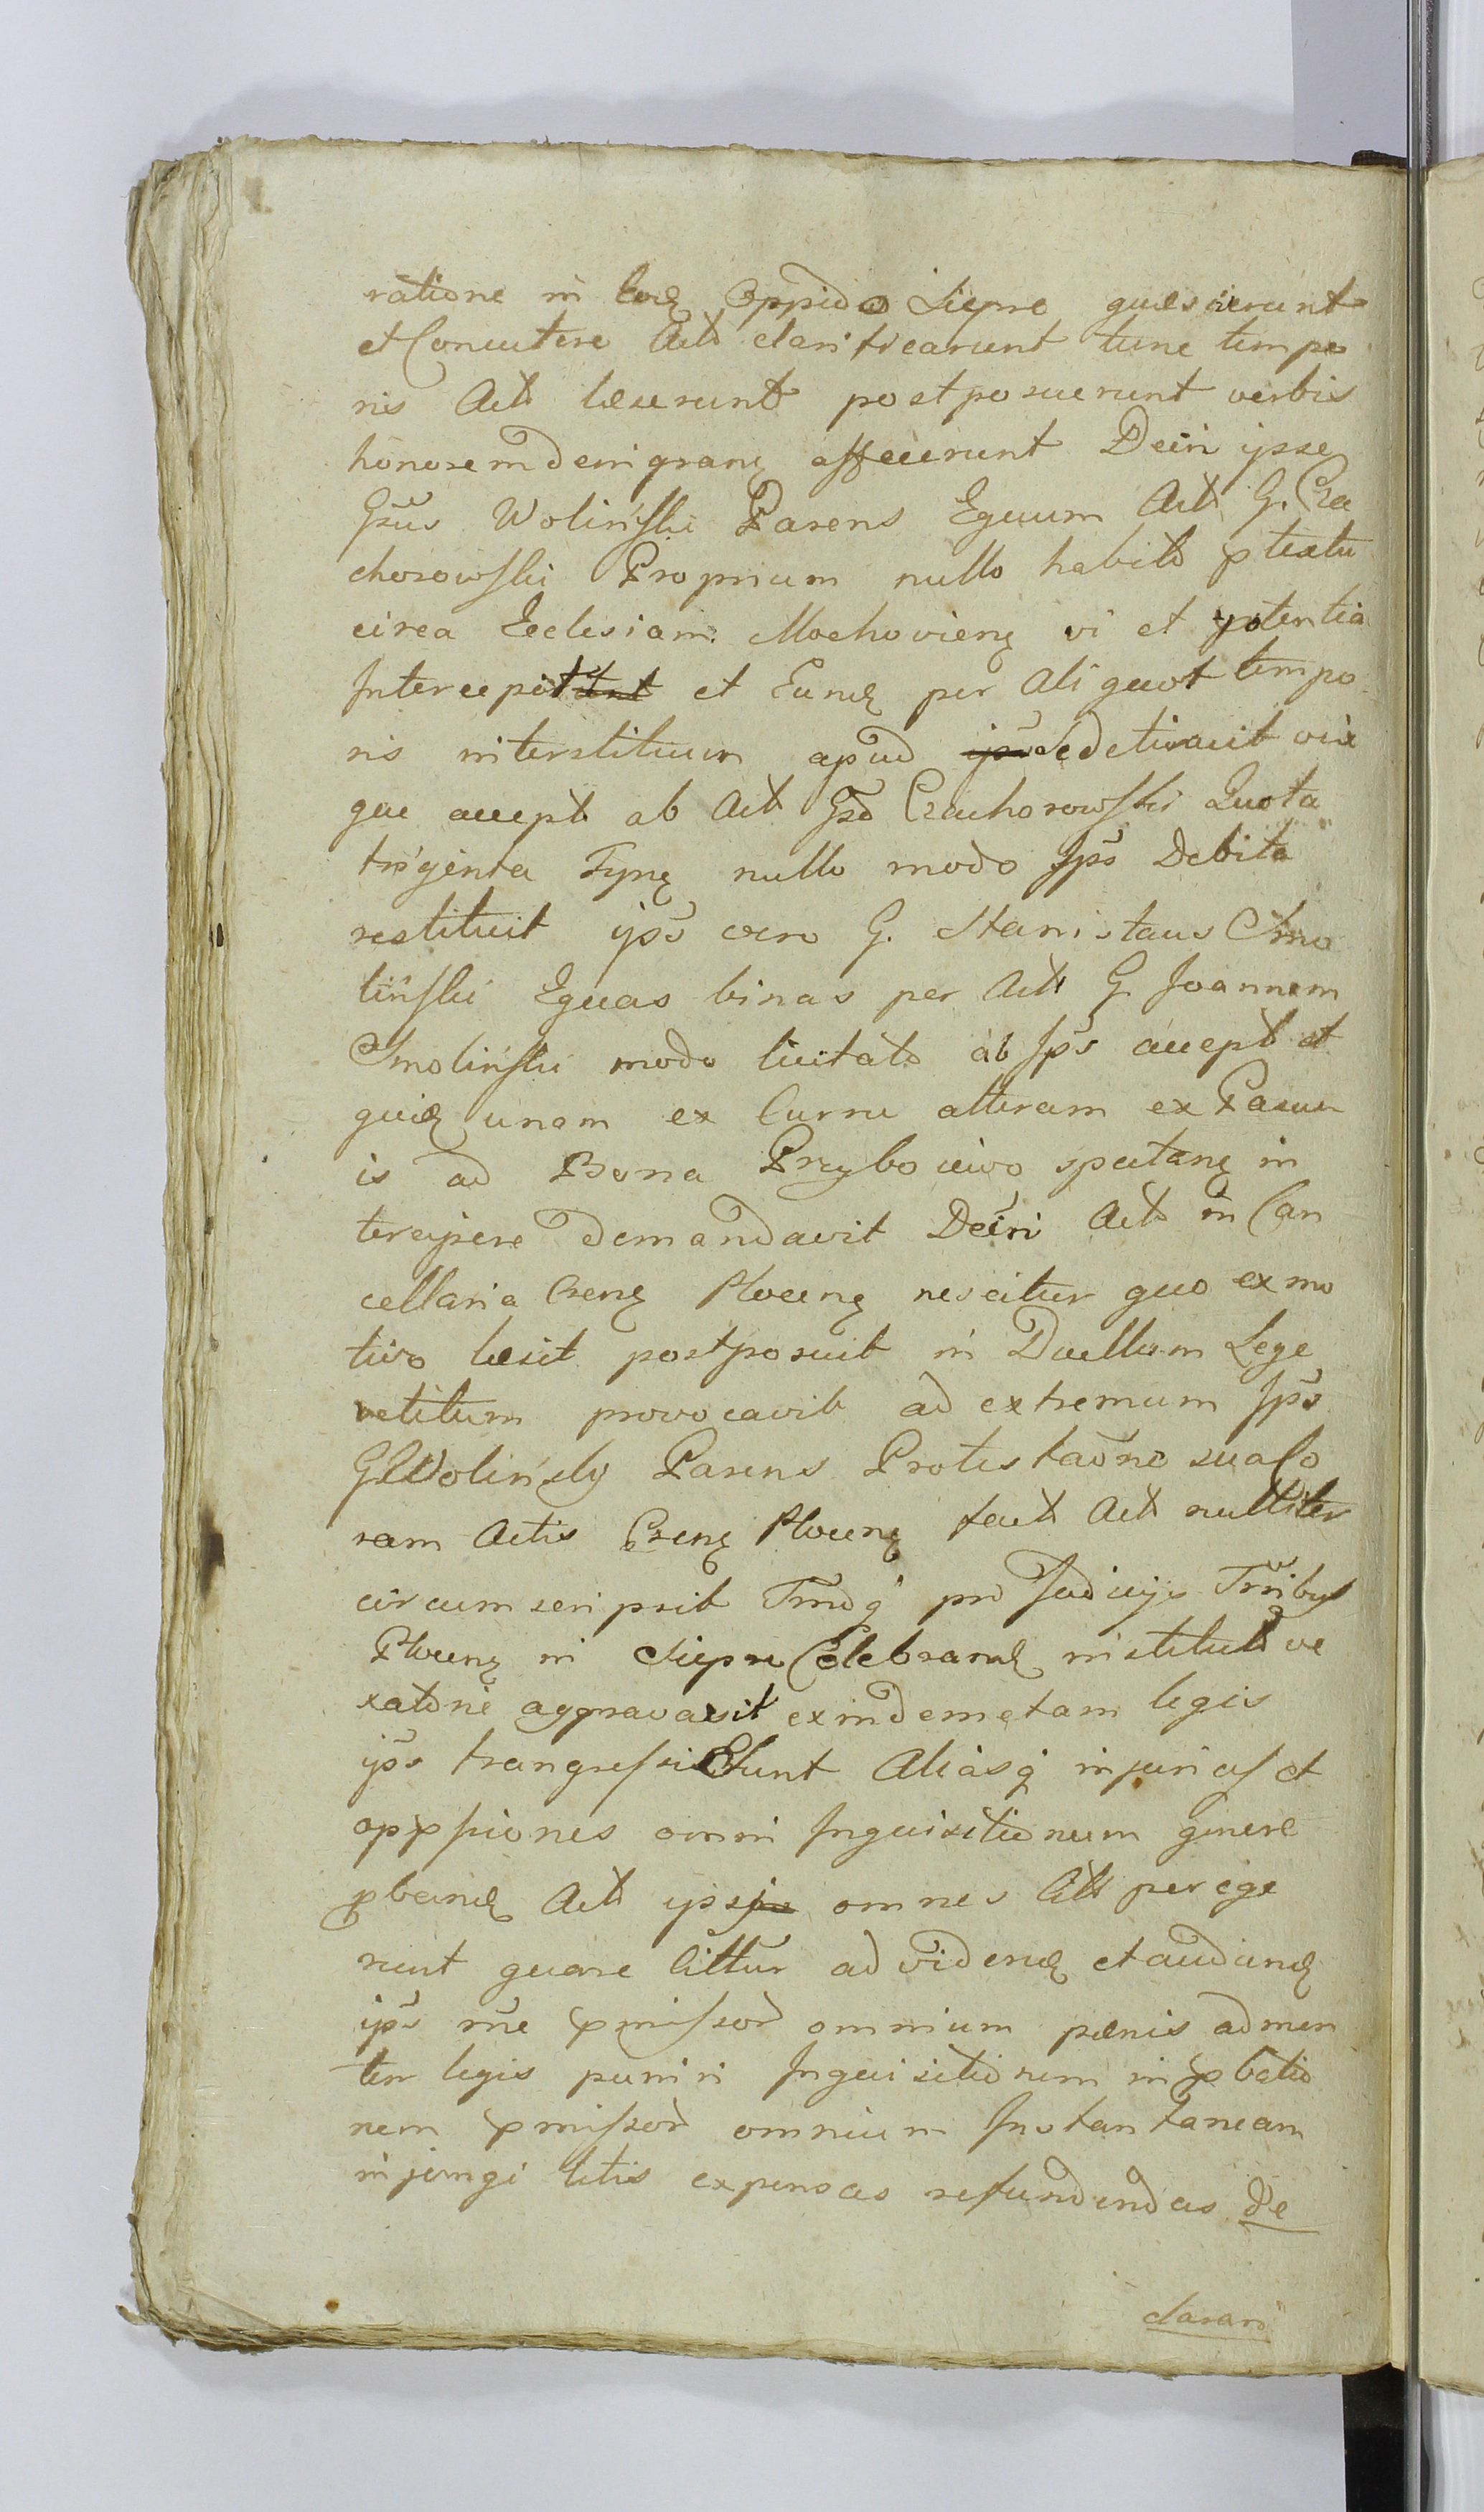 ratione in Eod Oppido Siepre quæsiverunt
et Concutere Actt clarificarunt tunc tempo
ris Actt læserunt postposuerunt verbis
honorem denigran affecerunt Dein ipse
Gsus Woliński Parens Equum Actt G. Cza
chorowski Proprium nullo habito ptextu
circa Ecclesiam Mochovien vi et potentia
Intercepit et Eund per aliquot tempo
ris interstitium apud se detinuit vix
que accept ab Actt Gso Czachorowski Quota
triginta Tyn nullo modo Ips Debita
restituit ips vero G. Stanislaus Smo
liński Equas binas per Actt G. Joannem
Smoliński modo licitato ab Ips accept et
quid unam ex Curru alteram ex Pascu
is ad Bona Przybociwo spectan in
tercipere demandavit Dein Actt in Can
cellaria Csren Plocen nescitur quo ex mo
tivo læsit postposuit in Duellum Lege
vetitum provocavit ad extremum Ips
G Woliński Parens Protestaone sua Co
ram Actis Csren Plocen fact Actt nulliter
circumscripsit Tmdq pro Judicijs Trribus
Plocen in Siepre Celebrand institut ve
xatone aggravavit exinde metam legis
ips transgressi sunt Aliasq injurias et
oppssiones omni Inquisitionum genere
pband Actt ips omnes Actt perege
runt quare Citttur ad videnđ et audiend
ips rne pmissor omnium pænis ad men
tem legis puniri Inquisitionem in pbatio
nem pmissor omnium Instantaneam
injungi litis expensas refundendas de
clarari